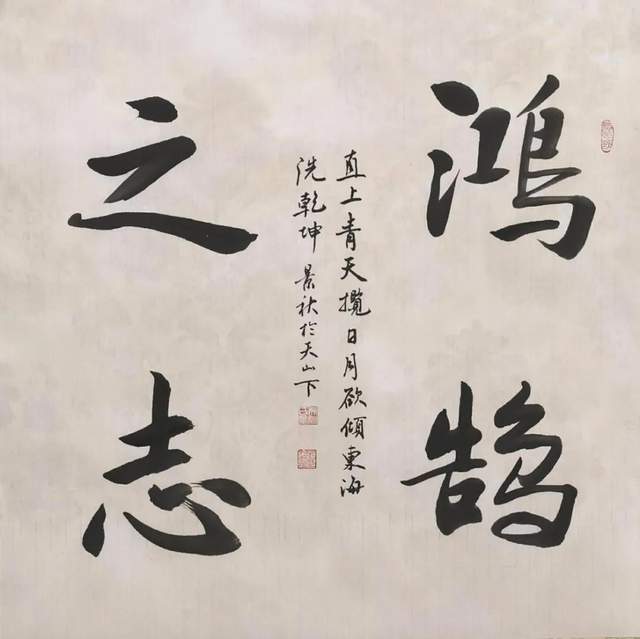 鴻鹄
之志
直上青天攬日月欲傾東海
洗乾坤 景秋於天山下